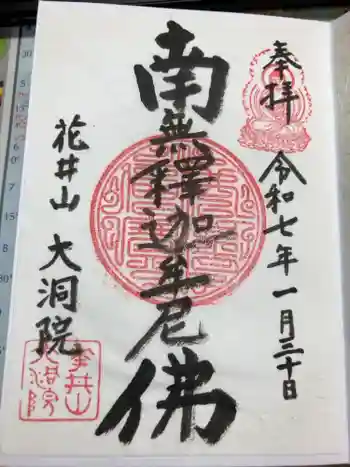 奉拝
令和七年一月三十日
南無釋迦牟尼佛
花井山
大洞院